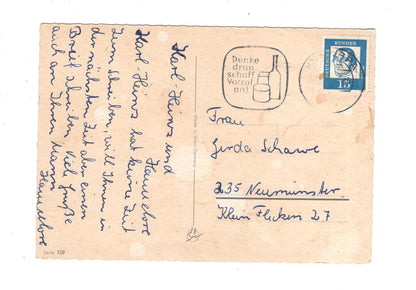 Karl Heinz und
Hannelore
Karl Heinz hat keine Zeit
zum Schreiben, will Ihnen in
der nächsten Zeit aber einen
Brief schreiben. Viel Grüße
auch an Ihren Mann
Hannelore
Denke
dran
schaff
Vorrat
an!
DEUTSCHE BUNDESPOST
15
Frau
Gerda Schawe
235 Neumünster
Klein Flecken 27
Serie 109